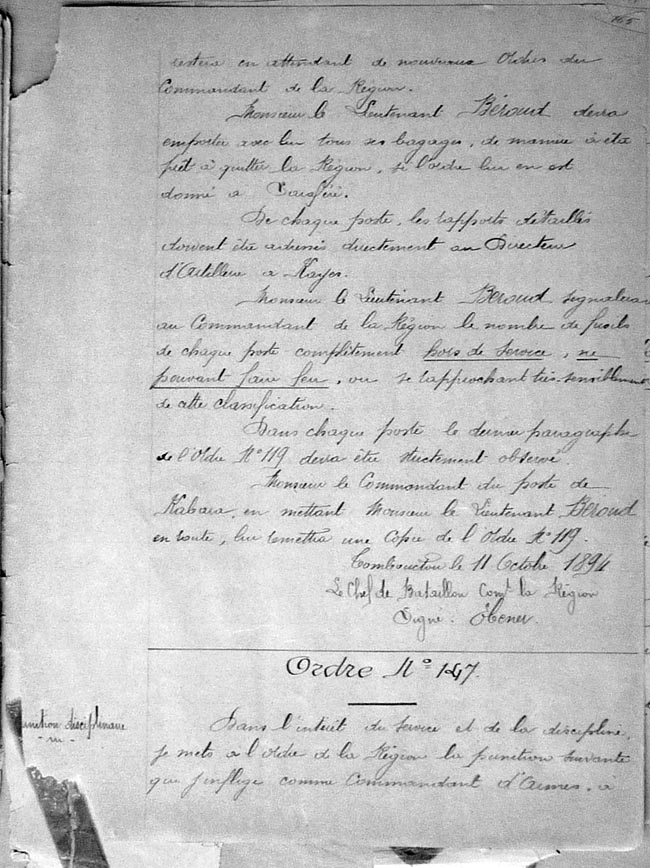 165
restera en attendant de nouveaux Ordres du
Commandant de la Région.
Monsieur le Lieutenant Béroud devra
emporter avec lui tous ses bagages, de manière à être
prêt à quitter la Région, si l'ordre lui en est
donné à
De chaque poste, les rapports détaillés
doivent être adressés directement au Directeur
d'Artillerie à Kayes.
Monsieur le Lieutenant Béroud signalera
au Commandant de la Région le nombre de fusils
de chaque poste complètement hors de service, ne
pouvant faire feu, ou se rapprochant très sensiblement
de cette classification.
Dans chaque poste le dernier paragraphe
de l'Ordre N° 119 devra être strictement observé.
Monsieur le Commandant du poste de
Kabara, en mettant Monsieur le Lieutenant Béroud
en route, lui remettra une Copie de l'Ordre N° 119.
Tombouctou le 11 Octobre 1894
Le Chef de Bataillon Comt la Région
Signé : Ebener.
Ordre N° 147.
punition disciplinaire
Dans l'intérêt du Service et de la discipline,
je mets à l'ordre de la Région la punition suivante
que j'inflige comme Commandant d'Armes, à